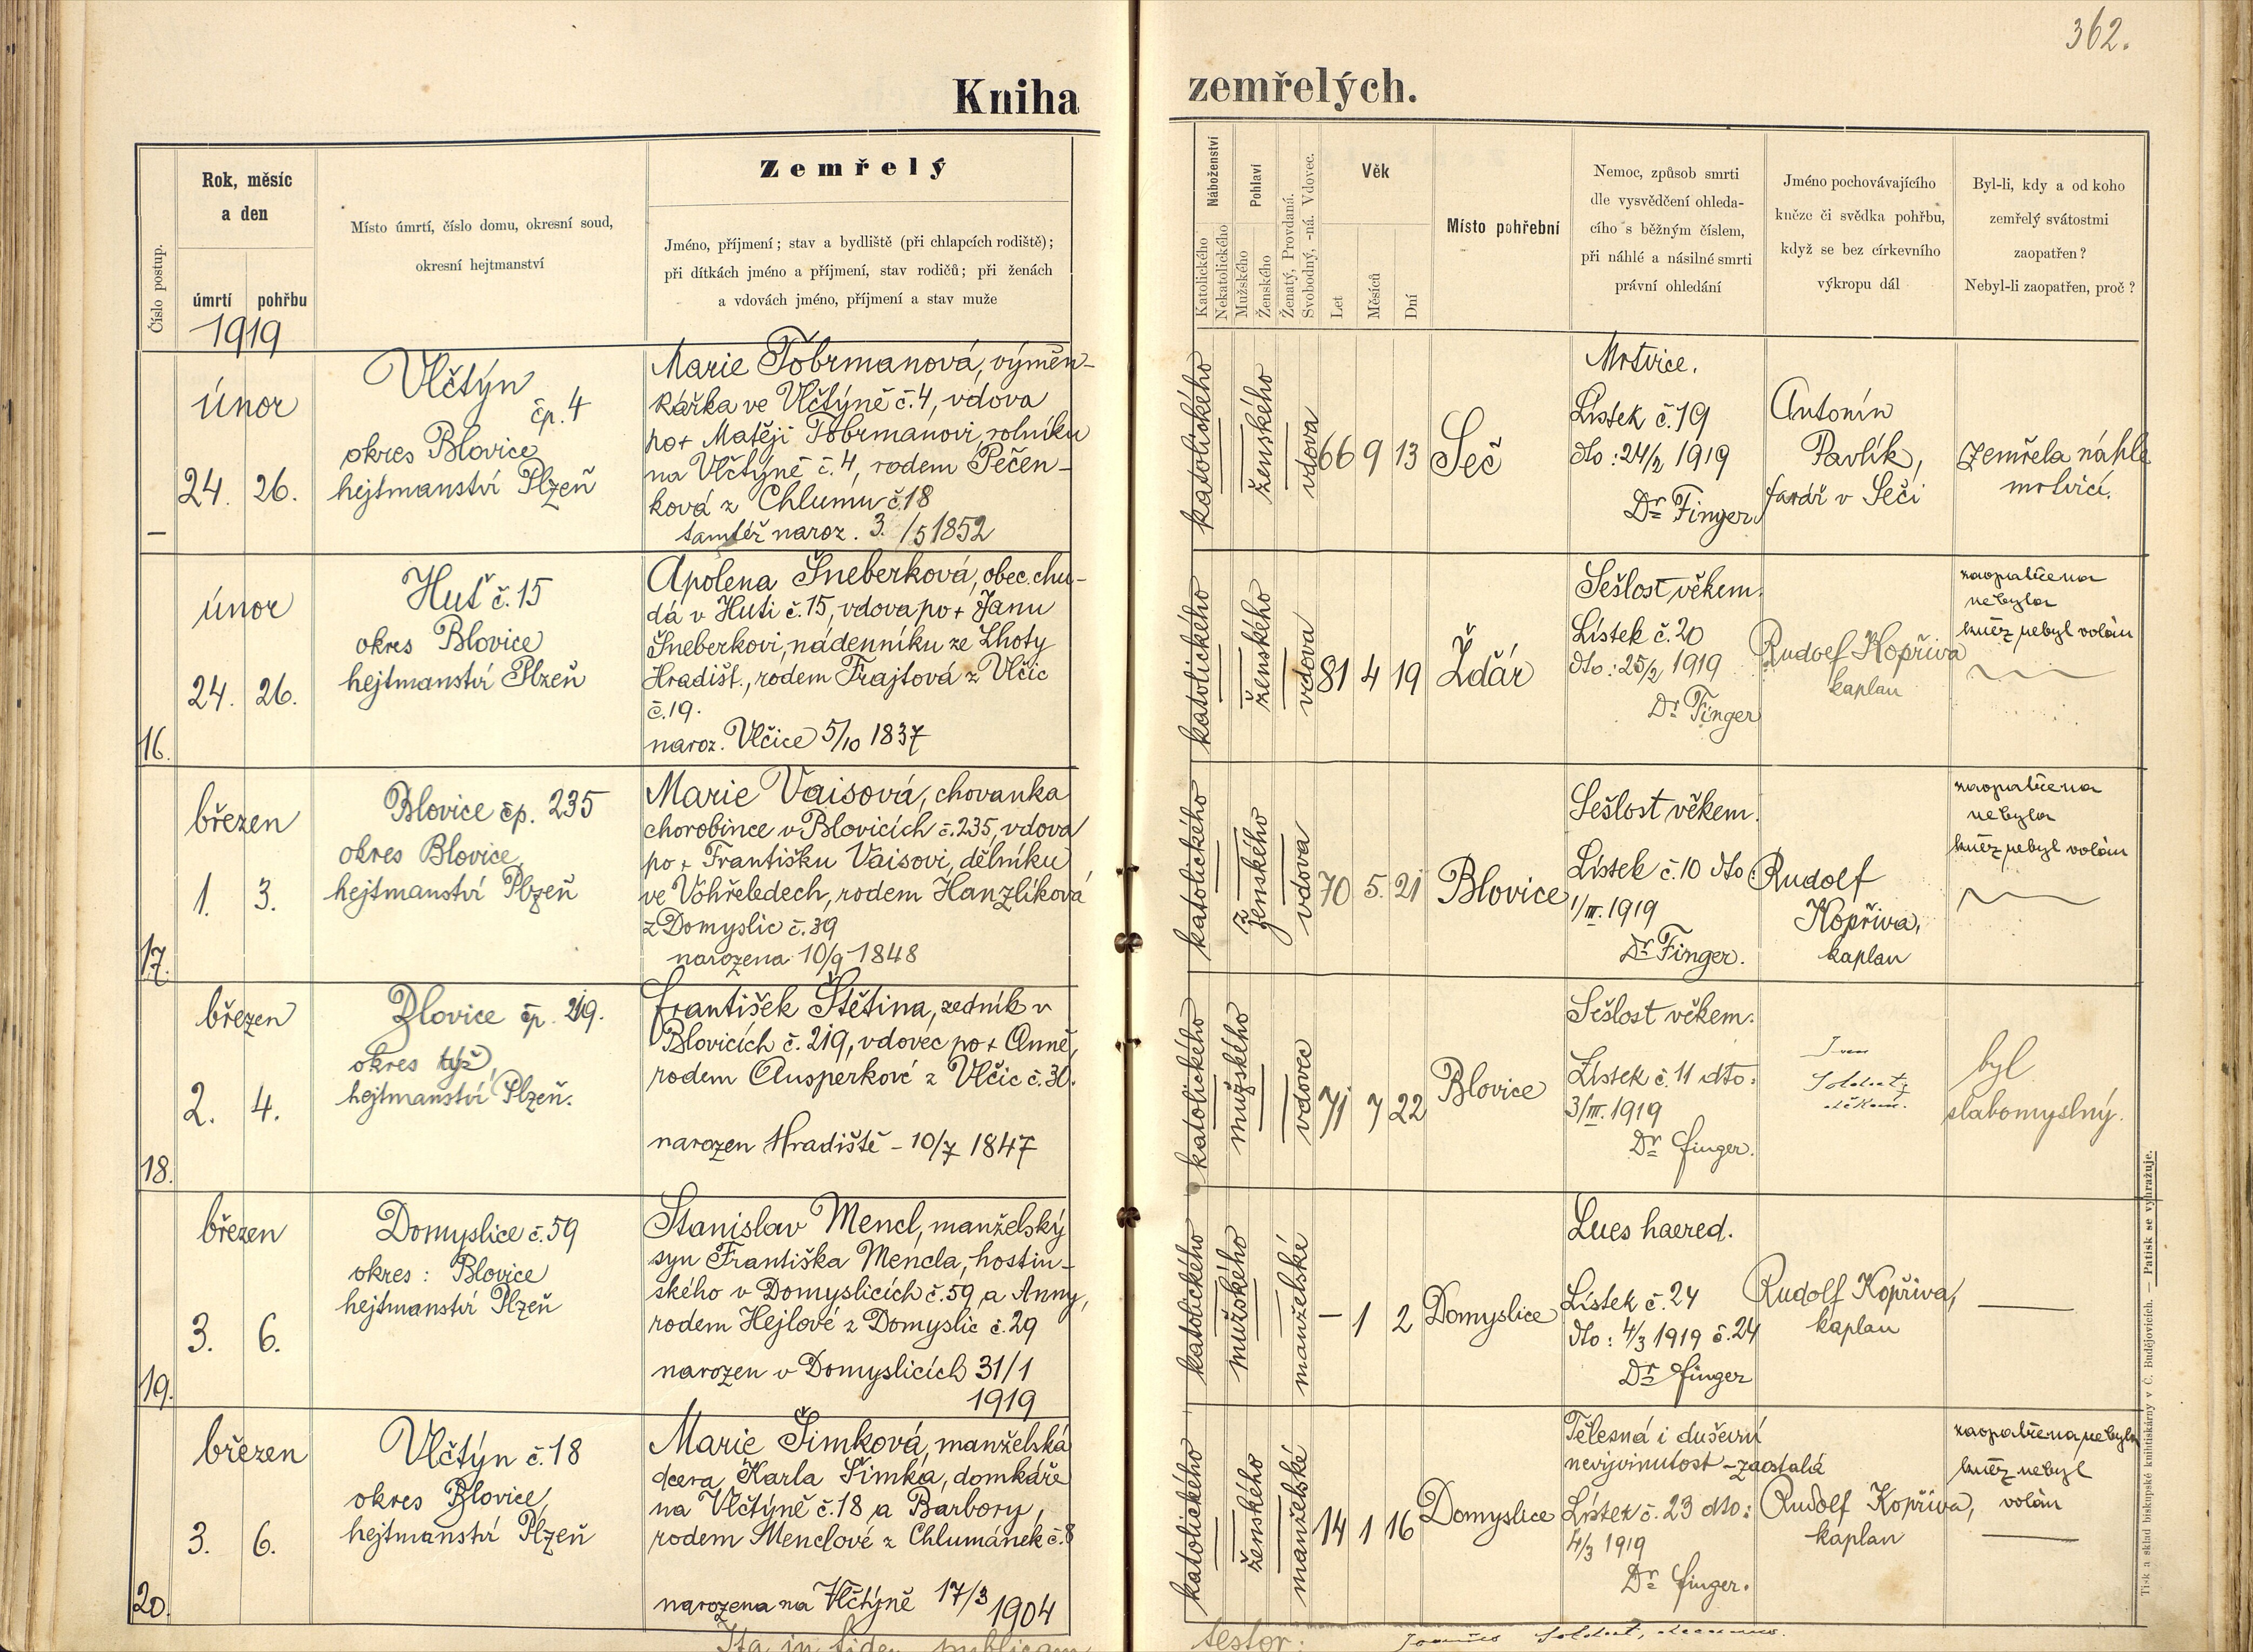 362.
Kniha zemřelých.
Číslo postup.
Rok, měsíc
a den
úmrtí
pohřbu
1919
Místo úmrtí, číslo domu, okresní soud,
okresní hejtmanství
Zemřelý
Jméno, příjmení; stav a bydliště (při chlapcích rodiště);
při dítkách jméno a příjmení, stav rodičů; při ženách
a vdovách jméno, příjmení a stav muže
Náboženství
Katolického
Nekatolického
Pohlaví
Mužského
Ženského
Ženatý, Provdaná.
Svobodný, -ná. Vdovec.
Věk
Let
Měsíců
Dní
Místo pohřební
Nemoc, způsob smrti
dle vysvědčení ohleda-
cího s běžným číslem,
při náhlé a násilné smrti
právní ohledání
Jméno pochovávajícího
kněze či svědka pohřbu,
když se bez církevního
výkropu dál
Byl-li, kdy a od koho
zemřelý svátostmi
zaopatřen?
Nebyl-li zaopatřen, proč?
—
únor
24. 26.
Vlčtýn
čp. 4
okres Blovice
hejtmanství Plzeň
Marie Tobrmanová, výměn-
kářka ve Vlčtýně č. 4, vdova
po + Matěji Tobrmanovi, rolníku
na Vlčtýně č. 4, rodem Pečen-
ková z Chlumu č. 18
tamtéž naroz. 3./5 1852
katolického
ženského
vdova
66 9 13
Seč
Mrtvice.
Lístek č. 19
dto: 24/2 1919
Dr Finger
Antonín
Pavlík,
farář v Seči
zemřela náhle
mrtvicí.
16.
únor
24. 26.
Huť č. 15
okres Blovice
hejtmanství Plzeň
Apolena Šneberková, obec. chu-
dá v Huti č. 15, vdova po + Janu
Šneberkovi, nádenníku ze Lhoty
Hradišt., rodem Frajtová z Vlčic
č. 19.
naroz. Vlčice 5/10 1837
katolického
ženského
vdova
81 4 19
Ždár
Sešlost věkem.
Lístek č. 20
dto: 25/2 1919
Dr Finger
Rudolf Kopřiva
kaplan
zaopatřena
nebyla
kněz nebyl volán
17.
březen
1. 3.
Blovice čp. 235
okres Blovice,
hejtmanství Plzeň
Marie Vaisová, chovanka
chorobince v Blovicích č. 235, vdova
po + Františku Vaisovi, dělníku
ve Vohřeledech, rodem Hanzlíková
z Domyslic č. 39
narozena 10/9 1848
katolického
ženského
vdova
70 5. 21
Blovice
Sešlost věkem.
Lístek č. 10 dto:
1/III. 1919
Dr Finger.
Rudolf
Kopřiva,
kaplan
zaopatřena
nebyla
kněz nebyl volán
18.
březen
2. 4.
Blovice čp. 219.
okres týž,
hejtmanství Plzeň.
František Štětina, zedník v
Blovicích č. 219, vdovec po + Anně,
rodem Ausperkové z Vlčic č. 30.
narozen Hradiště – 10/7 1847
katolického
mužského
vdovec
71 7 22
Blovice
Sešlost věkem.
Lístek č. 11 dto:
3/III. 1919
Dr Finger.
děkan.
byl
slabomyslný.
19.
březen
3. 6.
Domyslice č. 59
okres: Blovice
hejtmanství Plzeň
Stanislav Mencl, manželský
syn Františka Mencla, hostin-
ského v Domyslicích č. 59, a Anny,
rodem Hejlové z Domyslic č. 29
narozen v Domyslicích 31/1
1919
katolického
mužského
manželské
— 1 2
Domyslice
Lues haered.
Lístek č. 24
dto: 4/3 1919 č. 24
Dr Finger
Rudolf Kopřiva,
kaplan
—
20.
březen
3. 6.
Vlčtýn č. 18
okres Blovice,
hejtmanství Plzeň
Marie Šimková, manželská
dcera Karla Šimka, domkáře
na Vlčtýně č. 18 a Barbory,
rodem Menclové z Chlumánek č. 8
narozena na Vlčtýně 17/3 1904
katolického
ženského
manželské
14 1 16
Domyslice
Tělesná i duševní
nevyvinutost – zaostalá
Lístek č. 23 dto:
4/3 1919
Dr Finger.
Rudolf Kopřiva,
kaplan
zaopatřena nebyla
kněz nebyl
volán
Ita in fidem publicam
testor:
Tisk a sklad biskupské knihtiskárny v Č. Budějovicích. — Patisk se vyhražuje.